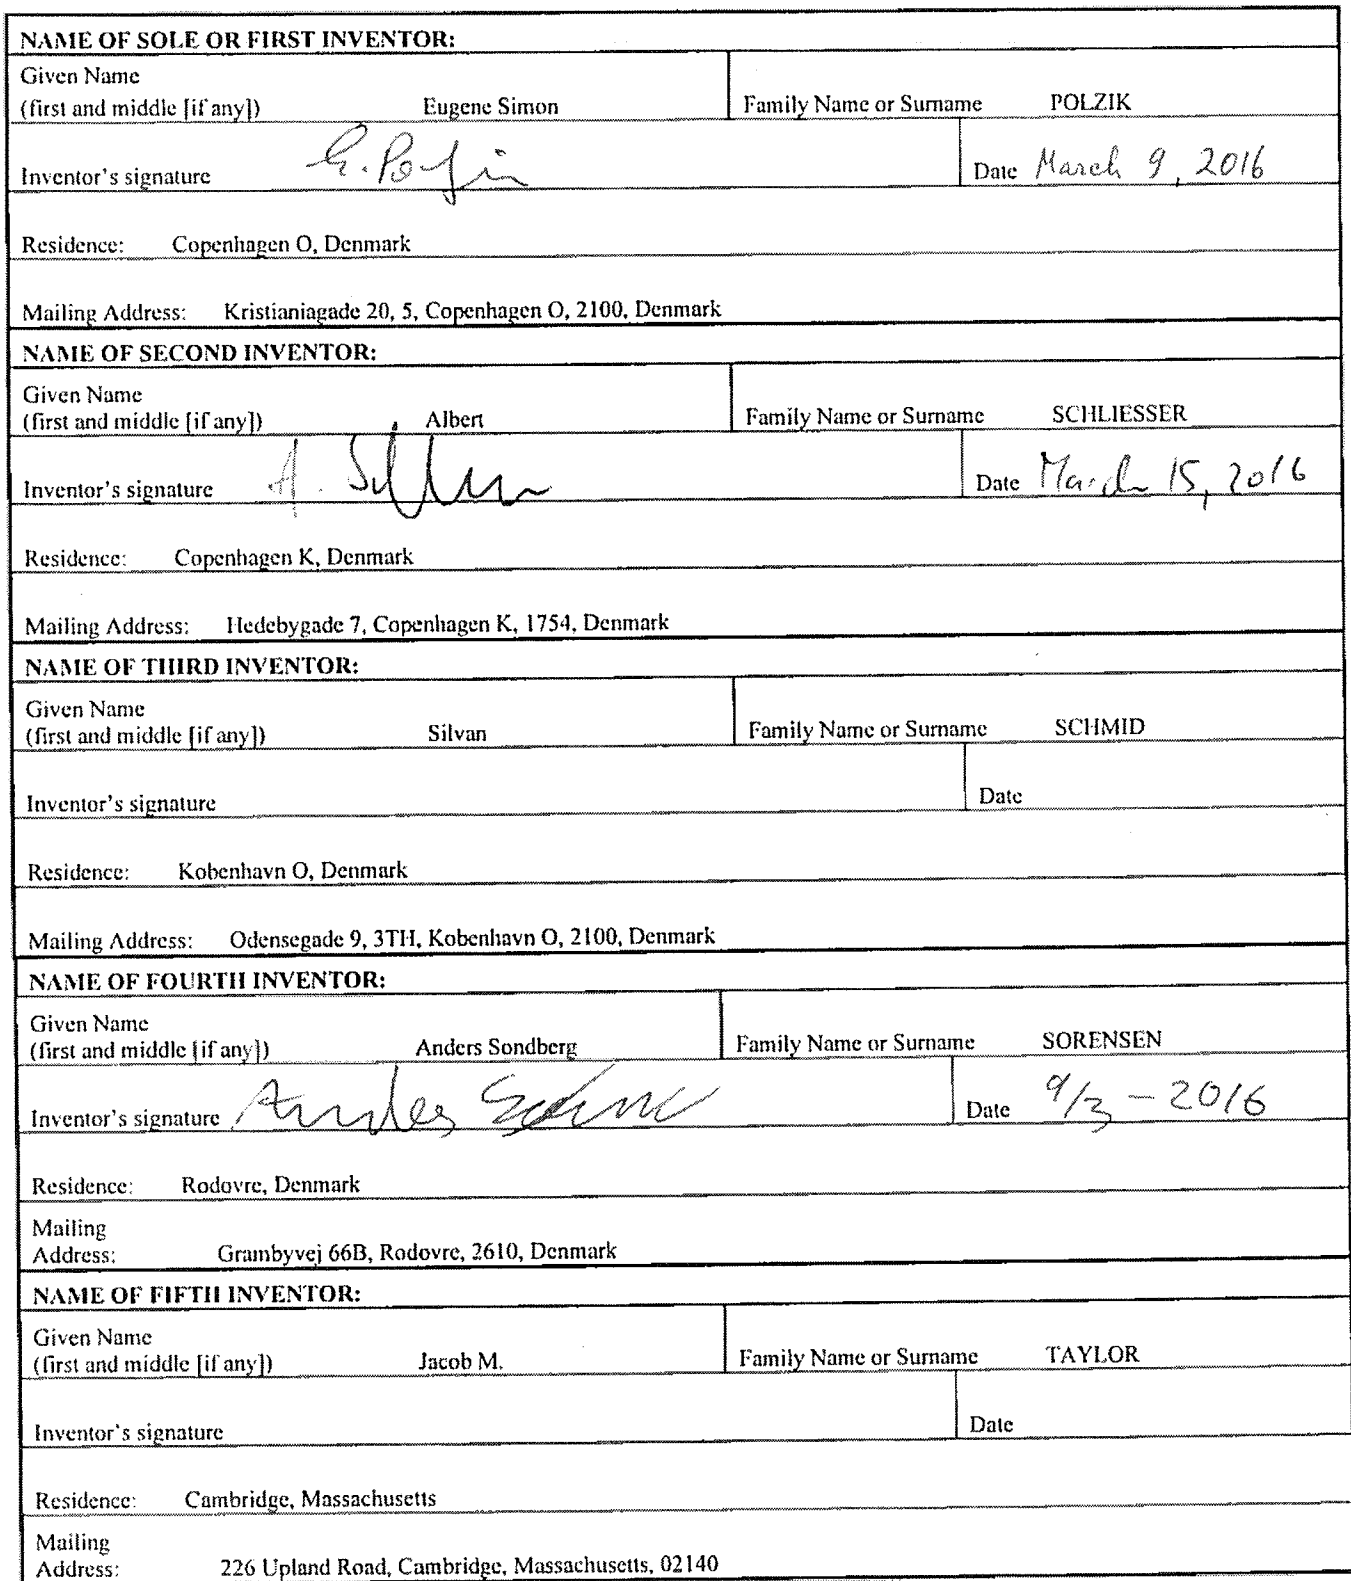 NAME OF SOLE OR FIRST INVENTOR:
Given Name
(first and middle [if any]) Eugene Simon Family Name or Surname POLZIK
Inventor's signature Date March 9, 2016
Residence: Copenhagen O, Denmark
Mailing Address: Kristianiagade 20, 5, Copenhagen O, 2100, Denmark
NAME OF SECOND INVENTOR:
Given Name
(first and middle [if any]) Albert Family Name or Surname SCHLIESSER
Inventor's signature Date March 15, 2016
Residence: Copenhagen K, Denmark
Mailing Address: Hedebygade 7, Copenhagen K, 1754, Denmark
NAME OF THIRD INVENTOR:
Given Name
(first and middle [if any]) Silvan Family Name or Surname SCHMID
Inventor's signature Date
Residence: Kobenhavn O, Denmark
Mailing Address: Odensegade 9, 3TH, Kobenhavn O, 2100, Denmark
NAME OF FOURTH INVENTOR:
Given Name
(first and middle [if any]) Anders Sondberg Family Name or Surname SORENSEN
Inventor's signature Anders Date 9/3 - 2016
Residence: Rodovre, Denmark
Mailing
Address: Grambyvej 66B, Rodovre, 2610, Denmark
NAME OF FIFTH INVENTOR:
Given Name
(first and middle [if any]) Jacob M. Family Name or Surname TAYLOR
Inventor's signature Date
Residence: Cambridge, Massachusetts
Mailing
Address: 226 Upland Road, Cambridge, Massachusetts, 02140